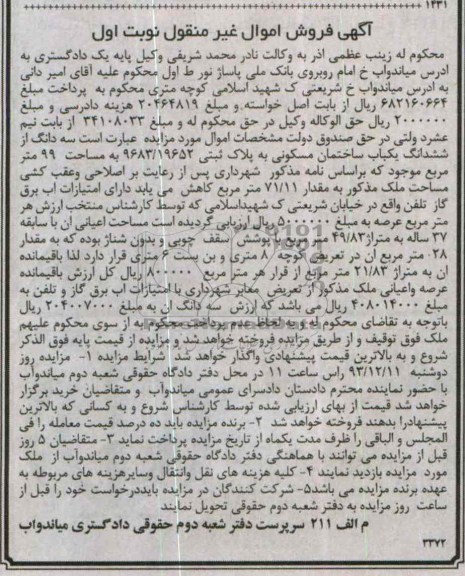 ۱۳۳۱
آگهی فروش اموال غیر منقول نوبت اول
محکوم له زینب عظمی اذر به وکالت نادر محمد شریفی وکیل پایه یک دادگستری به
ادرس میاندواب خ امام روبروی بانک ملی پاساژ نور ط اول محکوم علیه آقای امیر دانی
به ادرس میاندواب خ شریعتی ک شهید اسلامی کوچه متری محکوم به پرداخت مبلغ
۶۸۲۱۶۰۶۶۴ ریال از بابت اصل خواسته و مبلغ ۲۰۴۶۴۸۱۹ هزینه دادرسی و مبلغ
۲۰۰۰۰۰۰ ریال حق الوکاله وکیل در حق محکوم له و مبلغ ۳۴۱۰۸۰۳۳ از بابت نیم
عشرد ولتی در حق صندوق دولت مشخصات اموال مورد مزایده عبارت است سه دانگ از
ششدانگ یکباب ساختمان مسکونی به پلاک ثبتی ۹۶۸۳/۱۹۶۵۲ به مساحت ۹۹ متر
مربع موجود که براساس نامه مذکور شهرداری پس از رعایت بر اصلاحی وعقب کشی
مساحت ملک مذکور به مقدار ۷۱/۱۱ متر مربع کاهش می یابد دارای امتیازات اب برق
گاز تلفن واقع در خیابان شریعتی ک شهیداسلامی که توسط کارشناس منتخب ارزش هر
متر مربع عرصه به مبلغ ۵۰۰۰۰۰۰ ریال ارزیابی گردیده است مساحت اعیانی ان با سابقه
۳۷ ساله به متراژ ۴۹/۸۳ متر مربع با پوشش سقف چوبی و بدون شناژ بوده که به مقدار
۲۸ متر مربع ان در تعریض کوچه ۸ متری و بن بست ۶ متری قرار دارد لذا باقیمانده
ان به متراژ ۲۱/۸۳ متر مربع از قرار هر متر مربع ۸۰۰۰۰۰ ریال کل ارزش باقیمانده
عرصه واعیانی ملک مذکور از تعریض معابر شهرداری با امتیازات اب برق گاز و تلفن به
مبلغ ۴۰۸۰۱۴۰۰۰ ریال می باشد که ارزش سه دانگ ان به مبلغ ۲۰۴۰۰۷۰۰۰ ریال
باتوجه به تقاضای محکوم له و به لحاظ عدم پرداخت محکوم به از سوی محکوم علیهم
ملک فوق توقیف و از طریق مزایده فروخته خواهد شد و مزایده از قیمت پایه فوق الذکر
شروع و به بالاترین قیمت پیشنهادی واگذار خواهد شد شرایط مزایده ۱- مزایده روز
دوشنبه ۹۳/۱۲/۱۱ راس ساعت ۱۱ در محل دفتر دادگاه حقوقی شعبه دوم میاندوآب
با حضور نماینده محترم دادستان دادسرای عمومی میاندوآب و متقاضیان خرید برگزار
خواهد شد قیمت از بهای ارزیابی شده توسط کارشناس شروع و به کسانی که بالاترین
پیشنهادرا بدهند فروخته خواهد شد ۲- برنده مزایده باید ده درصد قیمت معامله را فی
المجلس و الباقی را ظرف مدت یکماه از تاریخ مزایده پرداخت نماید ۳- متقاضیان ۵ روز
قبل از مزایده می توانند با هماهنگی دفتر دادگاه حقوقی شعبه دوم میاندوآب از ملک
مورد مزایده بازدید نمایند ۴- کلیه هزینه های نقل وانتقال وسایرهزینه های مربوطه به
عهده برنده مزایده می باشد۵- شرکت کنندگان در مزایده بایددرخواست خود را قبل از
ساعت روز مزایده به دفتر شعبه دوم حقوقی تحویل نمایند
م الف ۲۱۱ سرپرست دفتر شعبه دوم حقوقی دادگستری میاندواب
۳۳۷۲